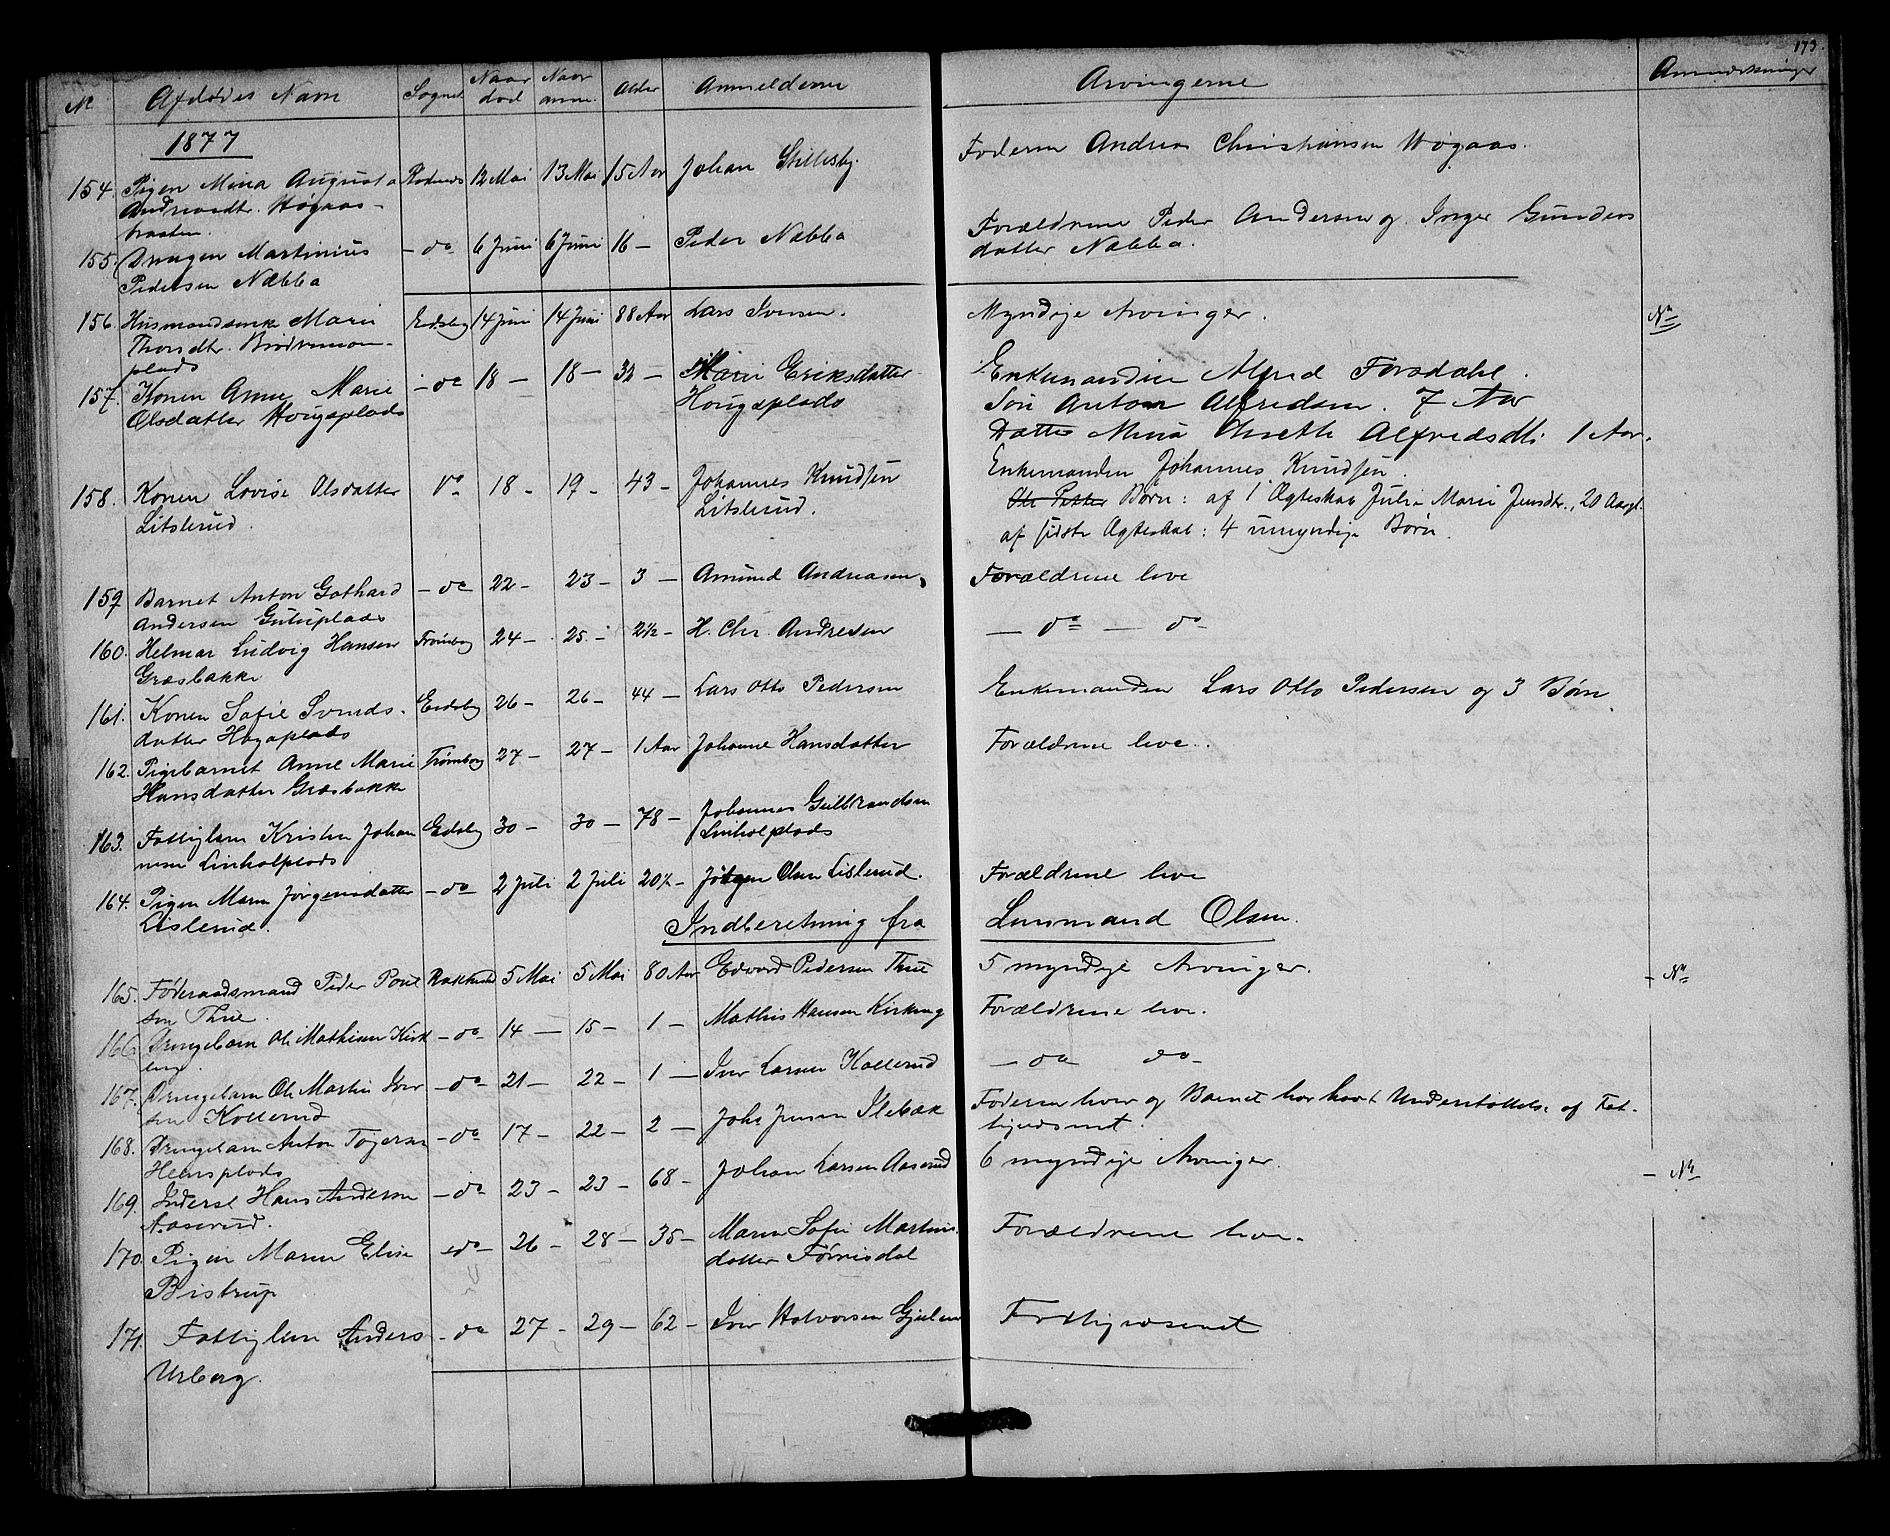 173.
No Afdødes Navn Sognet Naar død Naar anm. Alder Anmelderne Arvingerne Anmærkninger
1877
154. Pigen Mina Augusta Rødenes 12 Mai 13 Mai 15 Aar Johan Stillesby. Faderen Andreas Christiansen Høgaas.
Andreasdtr. Høgaas-
braaten.
155. Drengen Martinius - do - 6 Juni 6 Juni 16 - Peder Næbba Forældrene Peder Andersen og Inger Gunders
Pedersen Næbba datter Næbba.
156. Husmandsenke Marie Eidsberg 14 Juni 14 Juni 88 Aar Lars Iversen. Myndige Arvinger.
Thorsdtr.
plads
157. Konen Anne Marie - do 18 - 18 - 32 - Marie Eriksdatter Enkemanden Alfred Forsdahl.
Olsdatter Hougsplads Hougsplads Søn Anton Alfredsen. 7 Aar
Datter Mina Alfredsdtr. 1 Aar.
158. Konen Lovise Olsdatter do 18 - 19 - 43 - Johannes Knudsen Enkemanden Johannes Knudsen.
Litslerud. Litslerud. Børn: af 1 Ægteskab Julie Marie Jensdtr., 20 Aargl.
af sidste Ægteskab: 4 umyndige Børn.
159 Barnet Anton Gothard - do 22 - 23 - 3 - Amund Andreasen, Forældrene leve
Andersen
160. Helmar Ludvig Hansen Trømborg 24 - 25 - 2½ - H. Chr. Andresen - do - do -
Græsbakke
161. Konen Sofie Svends- Eidsberg 26 - 26 - 44 - Lars Otto Pedersen Enkemanden Lars Otto Pedersen og 3 Børn.
datter Hagaplads
162. Pigebarnet Anne Marie Trømborg 27 - 27 - 1 Aar Johanne Hansdatter Forældrene leve.
Hansdatter Græsbakke
163. Fattiglem Kristen Johan Eidsberg 30 - 30 - 78 - Johannes Gulbrandsen
nesen Linholplads Linholplads
164. Pigen Maren Jørgensdatter - do - 2 Juli 2 Juli 20½ - Jørgen Olsen Lislerud. Forældrene leve
Lislerud.
Indberetning fra Lensmand Olsen.
165. Føderaadsmand Peder Poul Rakkestad 5 Mai 5 Mai 80 Aar Edvard Pedersen Thue 5 myndige Arvinger. - No
sen Thue.
166. Drengebarn Ole Mathisen Kirk - do - 14 - 15 - 1 - Mathis Hansen Kirkeng Forældrene leve.
eng.
167. Drengebarn Ole Martin Iver - do - 21 - 22 - 1 - Iver Larsen Kollerud - do do -
sen Kollerud
168. Drengebarn Anton - do 17 - 22 - 2 - Johs Jensen Ilebæk Faderen lever og Barnet har havt Understøttelse af Fat-
tigvæsenet.
169. Inderst Hans Andersen - do 23 - 23 - 68 - Johan Larsen Aaserud 6 myndige Arvinger. - No
Aaserud.
170. Pigen Maren Elise - do - 26 - 28 - 35 - Maren Sofie Martins Forældrene leve.
Bistrup datter
171. Fattiglem Anders - do 27 - 29 - 62 - Iver Halvorsen Fattigvæsenet
Urberg.